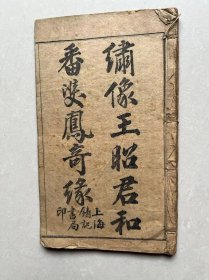 繡像王昭君和
番雙鳳奇緣
上海
鑄記
書局
印